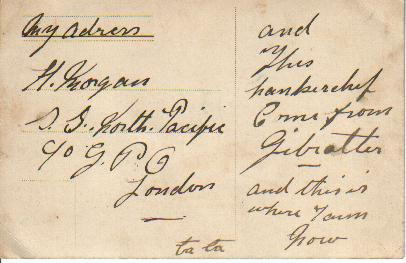 My adress
H. Morgan
S. S. North. Pacific
c/o G. P. O
London
ta ta
and
This
hankerchef
Come from
Gibralter
and this is
where I am
now